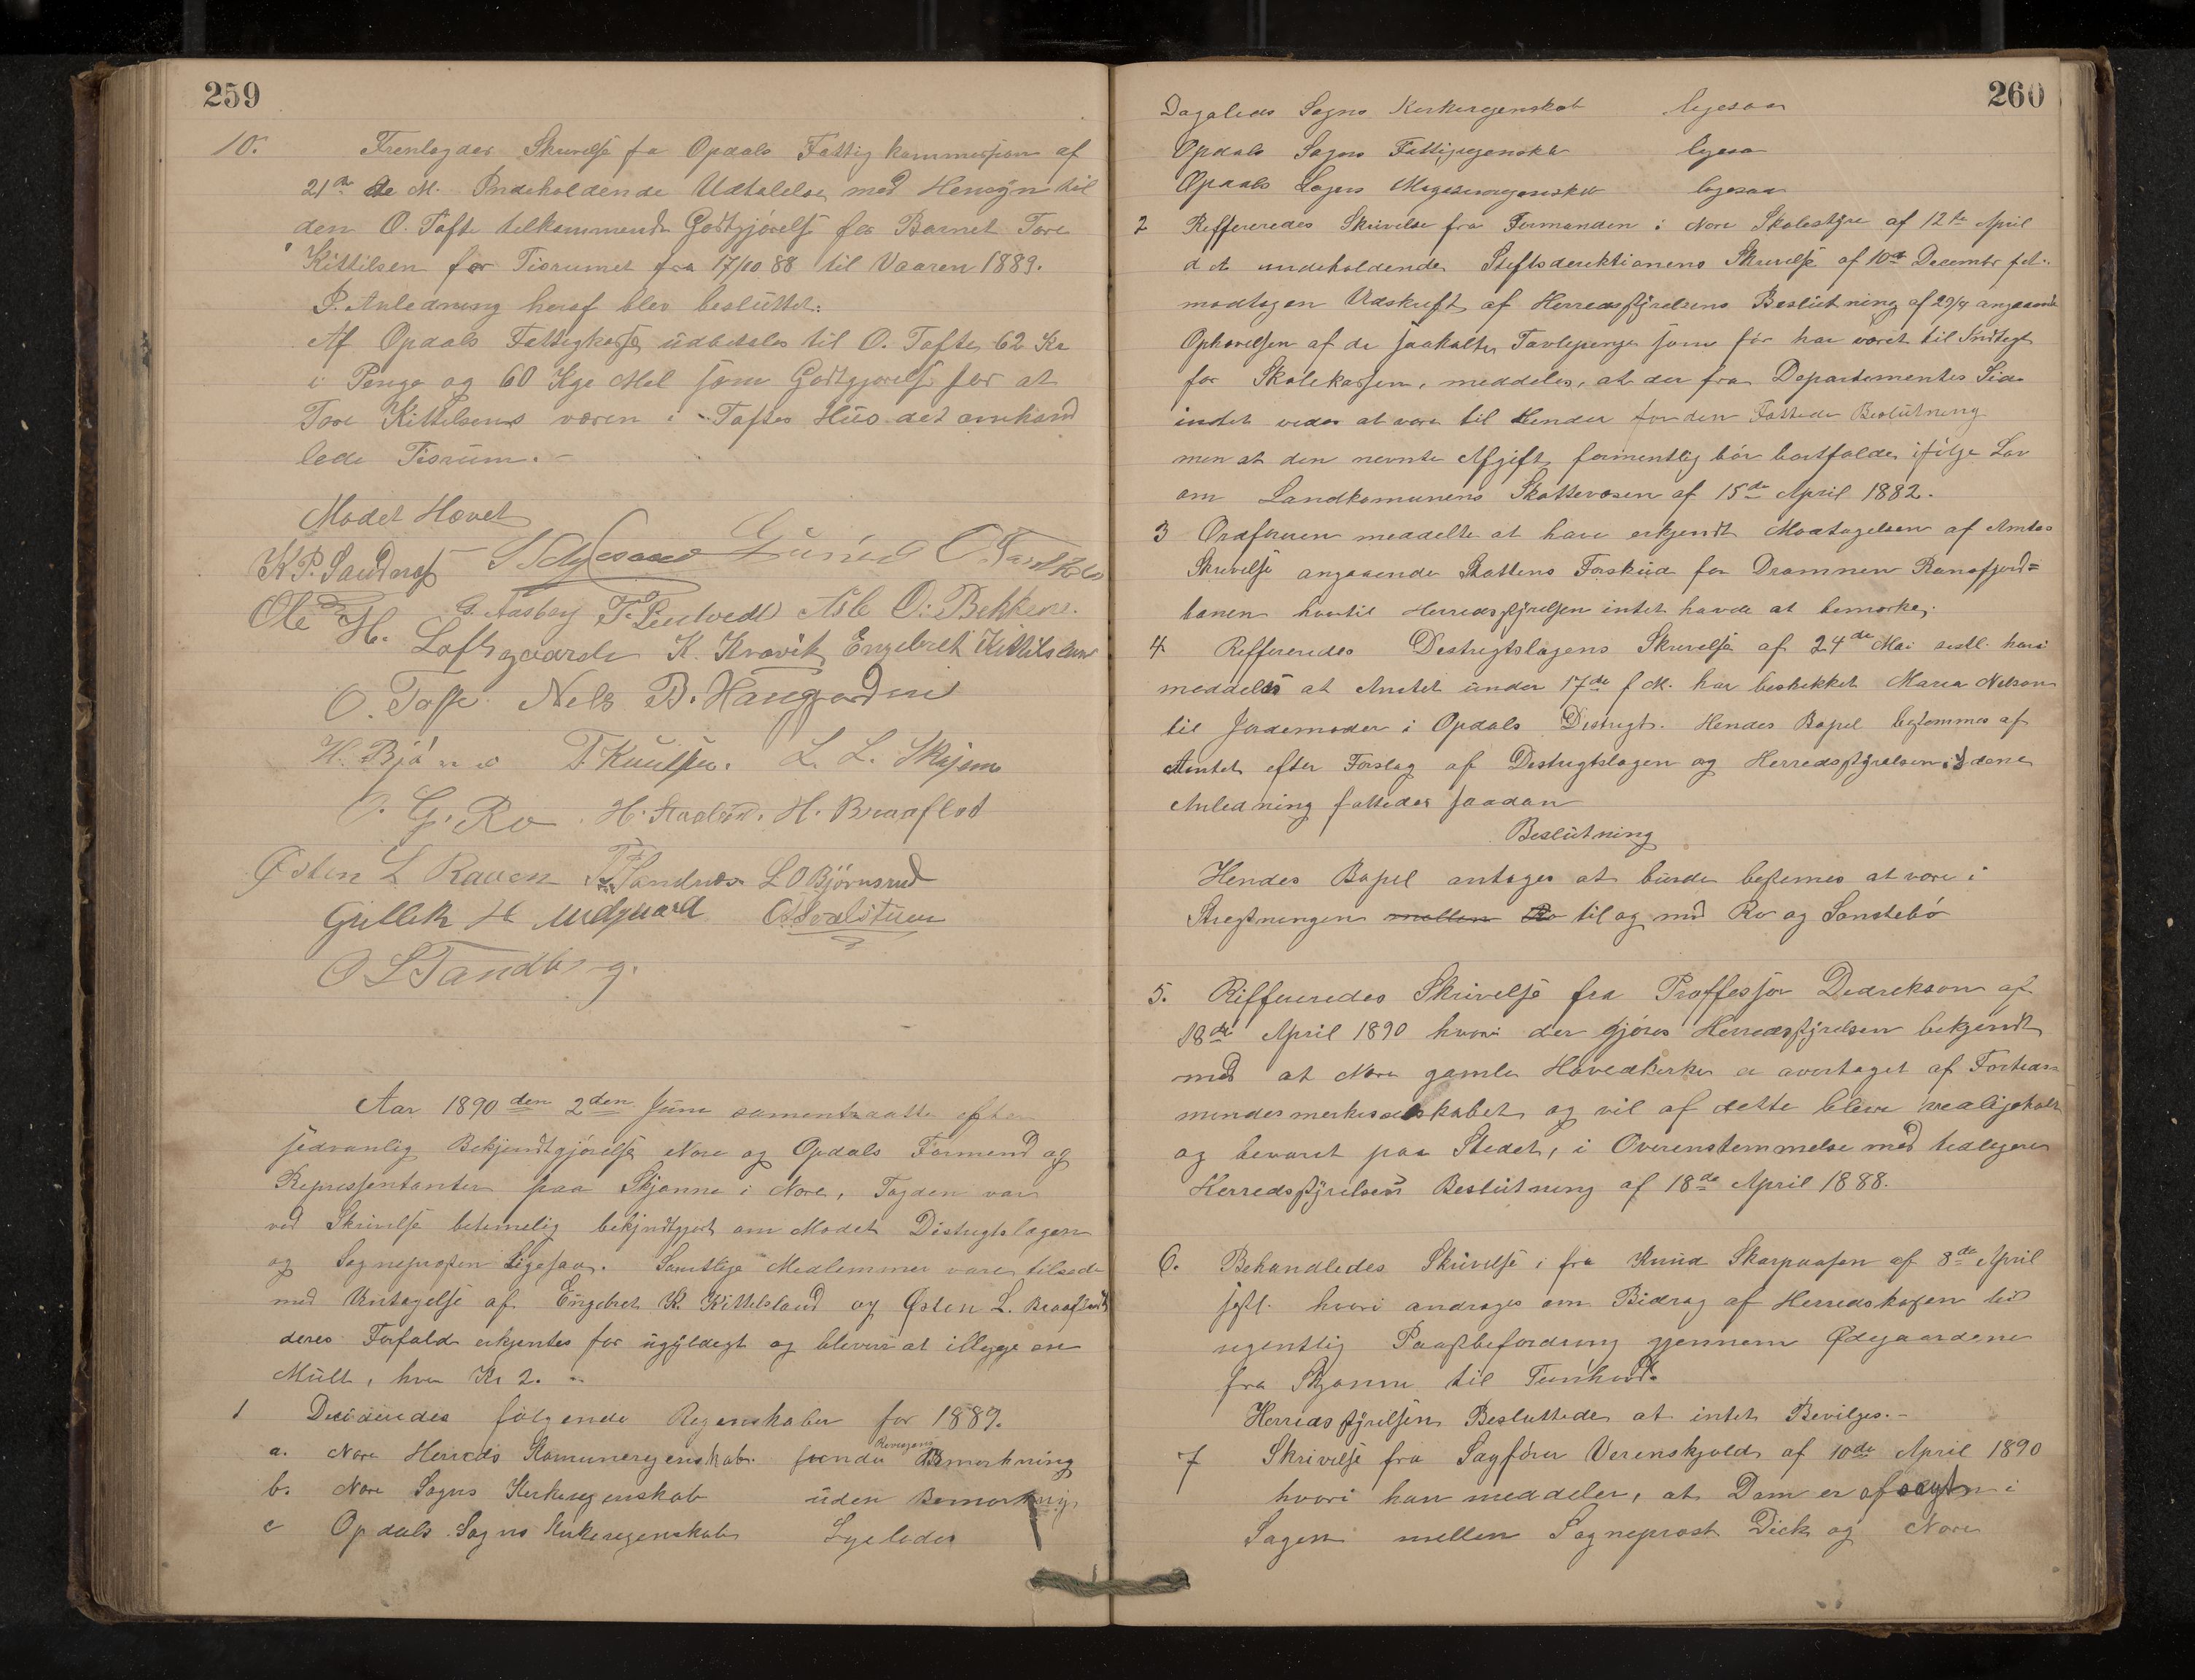 259
10. Fremlagdes Skrivelse fa Opdals Fattigkommission af
21de de M. Indeholdende Udtalelse med Hensyn til
den O. Tofte tilkommende Godtgjörelse for Barnet Tore
Kittilsen for Tisrumet fra 17/10 88 til Vaaren 1889.
I Anledning heraf blev besluttet:
Af Opdals Fattigkasse udbetales til O. Tofte 62 Kr
i Penge og 60 Kge Mel som Godtgjorelse for at
Tore Kittelsens væren i Toftes Hus det omhand
lede Tisrum.-
Mødet Hævet
K P. Sandnes Gunnul O.
Ole H. G. Aasberg T. Asle O. Bekken.
Loftsgaarde K. Kravik Engebret Kittilsland
O. Tofte Nels B. Haugardene
H. Björnso T Knutsen. L. L. Skjønne
O. G. Ro. H. H. Braaflad
Østen L Rauen T Sandnes L O Bjørnsrud
Gullek H Midgaard O
O L Tandberg.
Aar 1890 den 2den Juni sammentraatte efter
sedvanlig Bekjendtgjörelse Nore og Opdals Formend og
Repressentanter paa Skjønne i Nore, Fogden var
ved Skrivelse betimelig bekjndtgjort om Mødet Distrigtslægen
og Sognepresten Ligesaa. Samtlige Medlemmer vare tilstede
med Untagelse af Engebret K. Kittelsland og Østen L. Braaflandt
deres Forfald erkjentes for ugyldegt og blev at illegge en
Mult, hver Kr 2. -
1 Desiderides følgende Regenskaber for 1889.
a. Nore Herreds Komuneregenskab. Revisjons Bemerkning
b. Nore Sogns Kerkeregenskab uden Bemerkning
c Opdals Sogns Kirkeregenskab Lyeledes
260
Dagalieds Sogns Kerkeregenskab legesaa
Opdals Sogns Fattigregenskab legesa
Opdals Sogns Magasinregenskab legesaa
2 Reffereredes Skrivelse fra Formanden i Nore Skolestyre af 12te April
d A indeholdende Steftsdirektionens Skrivelse af 10de Decembr
modtagen Udskrift af Herredsstyrelsens Beslutning af 29/4 angaaende
Ophævelsen af de saakalte Tavlepenge som før har været til Indtegt
for Skolekassen, meddeles, at der fra Departementes Side
indtet vedes at være til Hender for den Fattede Beslutning
men at den nevnte Afgift formentlig bør bortfalde ifølge Lov
om Landkomunens Skattevæsen af 15de April 1882.
3 Ordføreren meddelte at have erkjendt Modtagelsen af Amtes
Skrivelse angaaende Stattens Forskud for Dramnen Ransfjord=
banen hvortil Herredsstyrelsen intet havde at bemærke.
4 Reffereredes Destrigtslægens Skrivelse af 24de Mai sistl. hvori
meddeles at Amtet under 17de f M. har beskikket Maria Nelson
til Jordemoder i Opdals Distrigt. Hendes Bopel bestemmes af
Amtet efter Forslag af Destrigtslægen og Herredsstyrelsen. I dene
Anledning fattedes saadan
Beslutning
Hendes Bopel antages at burde bestemes at være i
Stregningen mellem Ro til og med Ro og Sønstebö
5. Riffereredes Skrivelse fra Proffessor Dedrekson af
18de April 1890 hvori der gjöres Herredsstyrelsen bekjendt
med at Nore gamle Hovedkerke er overtaget af Forteds
mindesmerkesselskabet og vil af dette bleve vedligeholt
og bevaret paa Stedet, i Overenstemmelse med tedligere
Herredsstyrelsens Beslutning af 18de April 1888.
6. Behandledes Skrivelse i fra Knud Skarpaasen af 8de April
sistl. hvori andrages om Bidrag af Herredskassen til
regentlig Paastbefordring gjennem Ødegaardene
fra Skjønne til Tunhovd.
Herredsstyrelsen Besluttede at intet Bevilges.-
7 Skrivelse fra Sagfører Verenskjold af 10de April 1890
hvori han meddeler, at Dom er afsagt i
Sagen mellem Sogneprest Dick og Nore